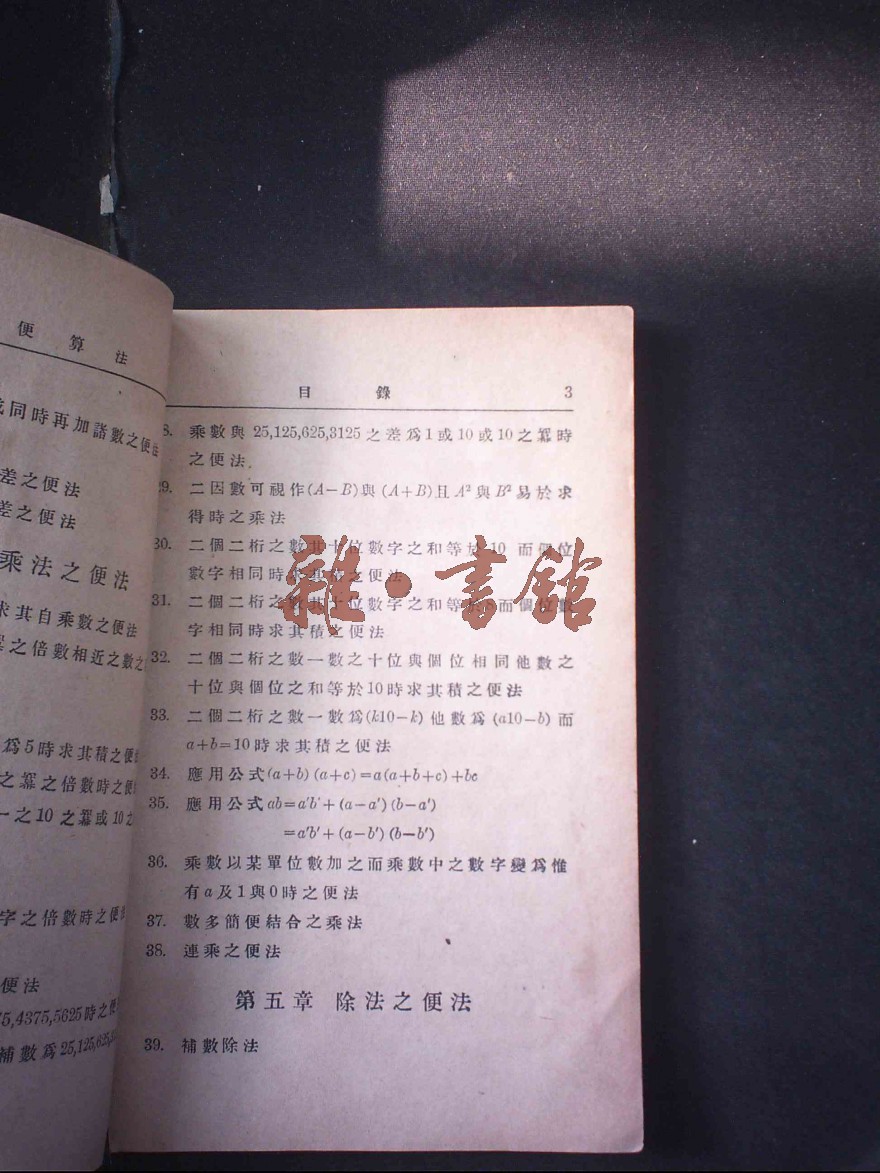 便算法
同時再加諸數之便法
差之便法
差之便法
乘法之便法
求其自乘數之便法
之倍數相近之數之
爲5時求其積之便
之冪之倍數時之便
一之10之冪或10之
字之倍數時之便
便法
5,4375,5625時之便
補數爲25,125,625,
目錄 3
8. 乘數與25,125,625,3125之差爲1或10或10之冪時
之便法
29. 二因數可視作(A−B)與(A+B)且A²與B²易於求
得時之乘法
30. 二個二桁之數其十位數字之和等於10而個位
數字相同時求其積之便法
31. 二個二桁之數其十位數字之和等於 而個位數
字相同時求其積之便法
32. 二個二桁之數一數之十位與個位相同他數之
十位與個位之和等於10時求其積之便法
33. 二個二桁之數一數爲(k10−k)他數爲(a10−b)而
a+b=10時求其積之便法
34. 應用公式(a+b)(a+c)=a(a+b+c)+bc
35. 應用公式ab=a'b'+(a−a')(b−a')
=a'b'+(a−b')(b−b')
36. 乘數以某單位數加之而乘數中之數字變爲惟
有a及1與0時之便法
37. 數多簡便結合之乘法
38. 連乘之便法
第五章 除法之便法
39. 補數除法
雜·書館